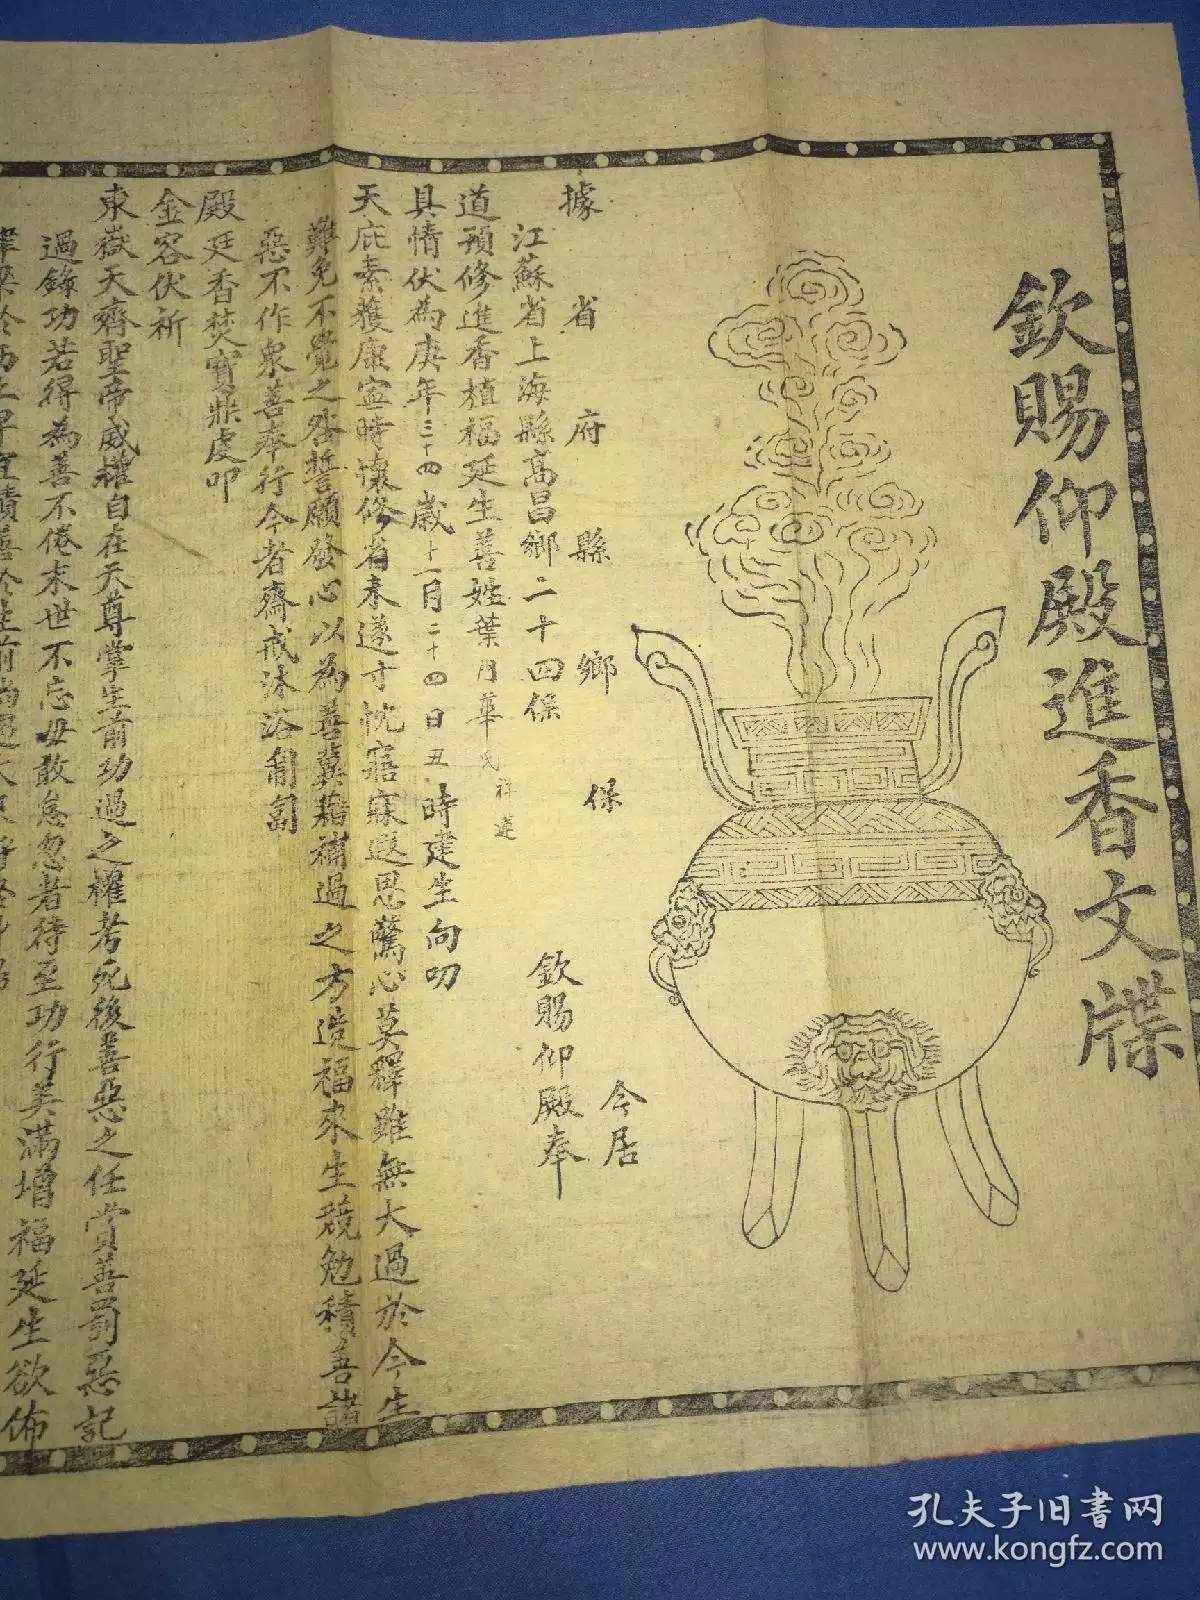 欽賜仰殿進香文牒
據 省 府 縣 鄉 保 今居
江蘇省上海縣高昌鄉二十四保 欽賜仰殿奉
道預修進香植福延生善姓葉門華氏
具情伏為庚年三十四歲十一月二十四日丑時建生向叨
天庇素獲康寧時懷修省未遂寸忱寤寐遐思驚心莫釋雖無大過於今生
難免不覺之咎誓願發心以為善冀藉補過之方造福來生競勉積善諸
惡不作衆善奉行今者齋戒沐浴匍匐
殿廷香焚寶鼎虔叩
金容伏祈
東嶽天齊聖帝威權自在天尊掌生前功過之權考死後善惡之任賞善罰惡記
過錄功若得為善不倦末世不忘毋敢怠忽者待至功行美滿增福延生欲佈
孔夫子旧书网
www.kongfz.com